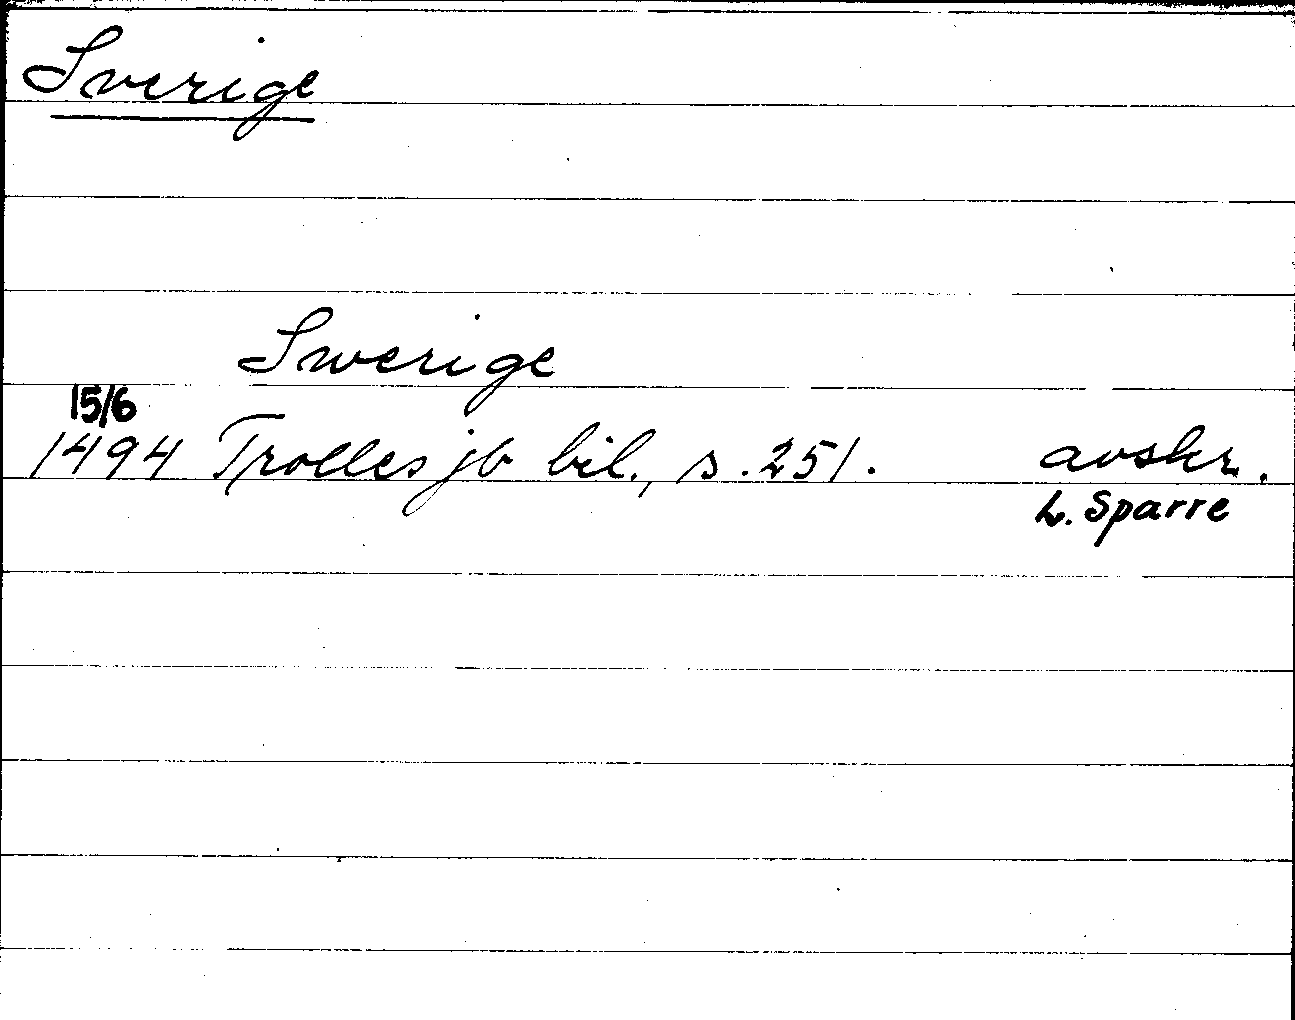 Sverige
Swerige
15/6
1494 Trolles jb bil., s. 251. avskr.
L. Sparre